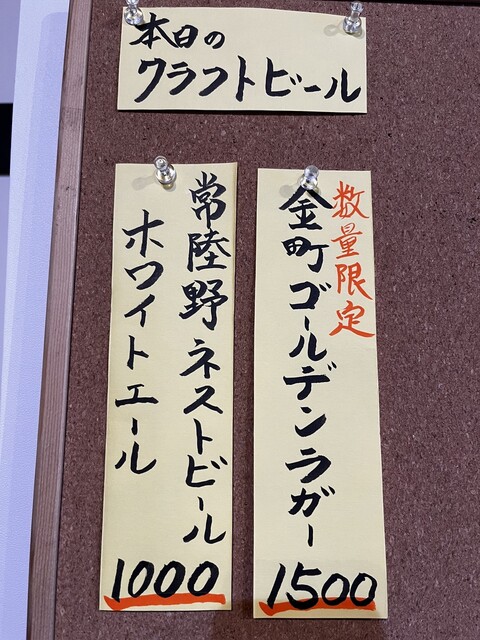 本日の
クラフトビール
数量限定
金町ゴールデンラガー
1500
常陸野ネストビール
ホワイトエール
1000